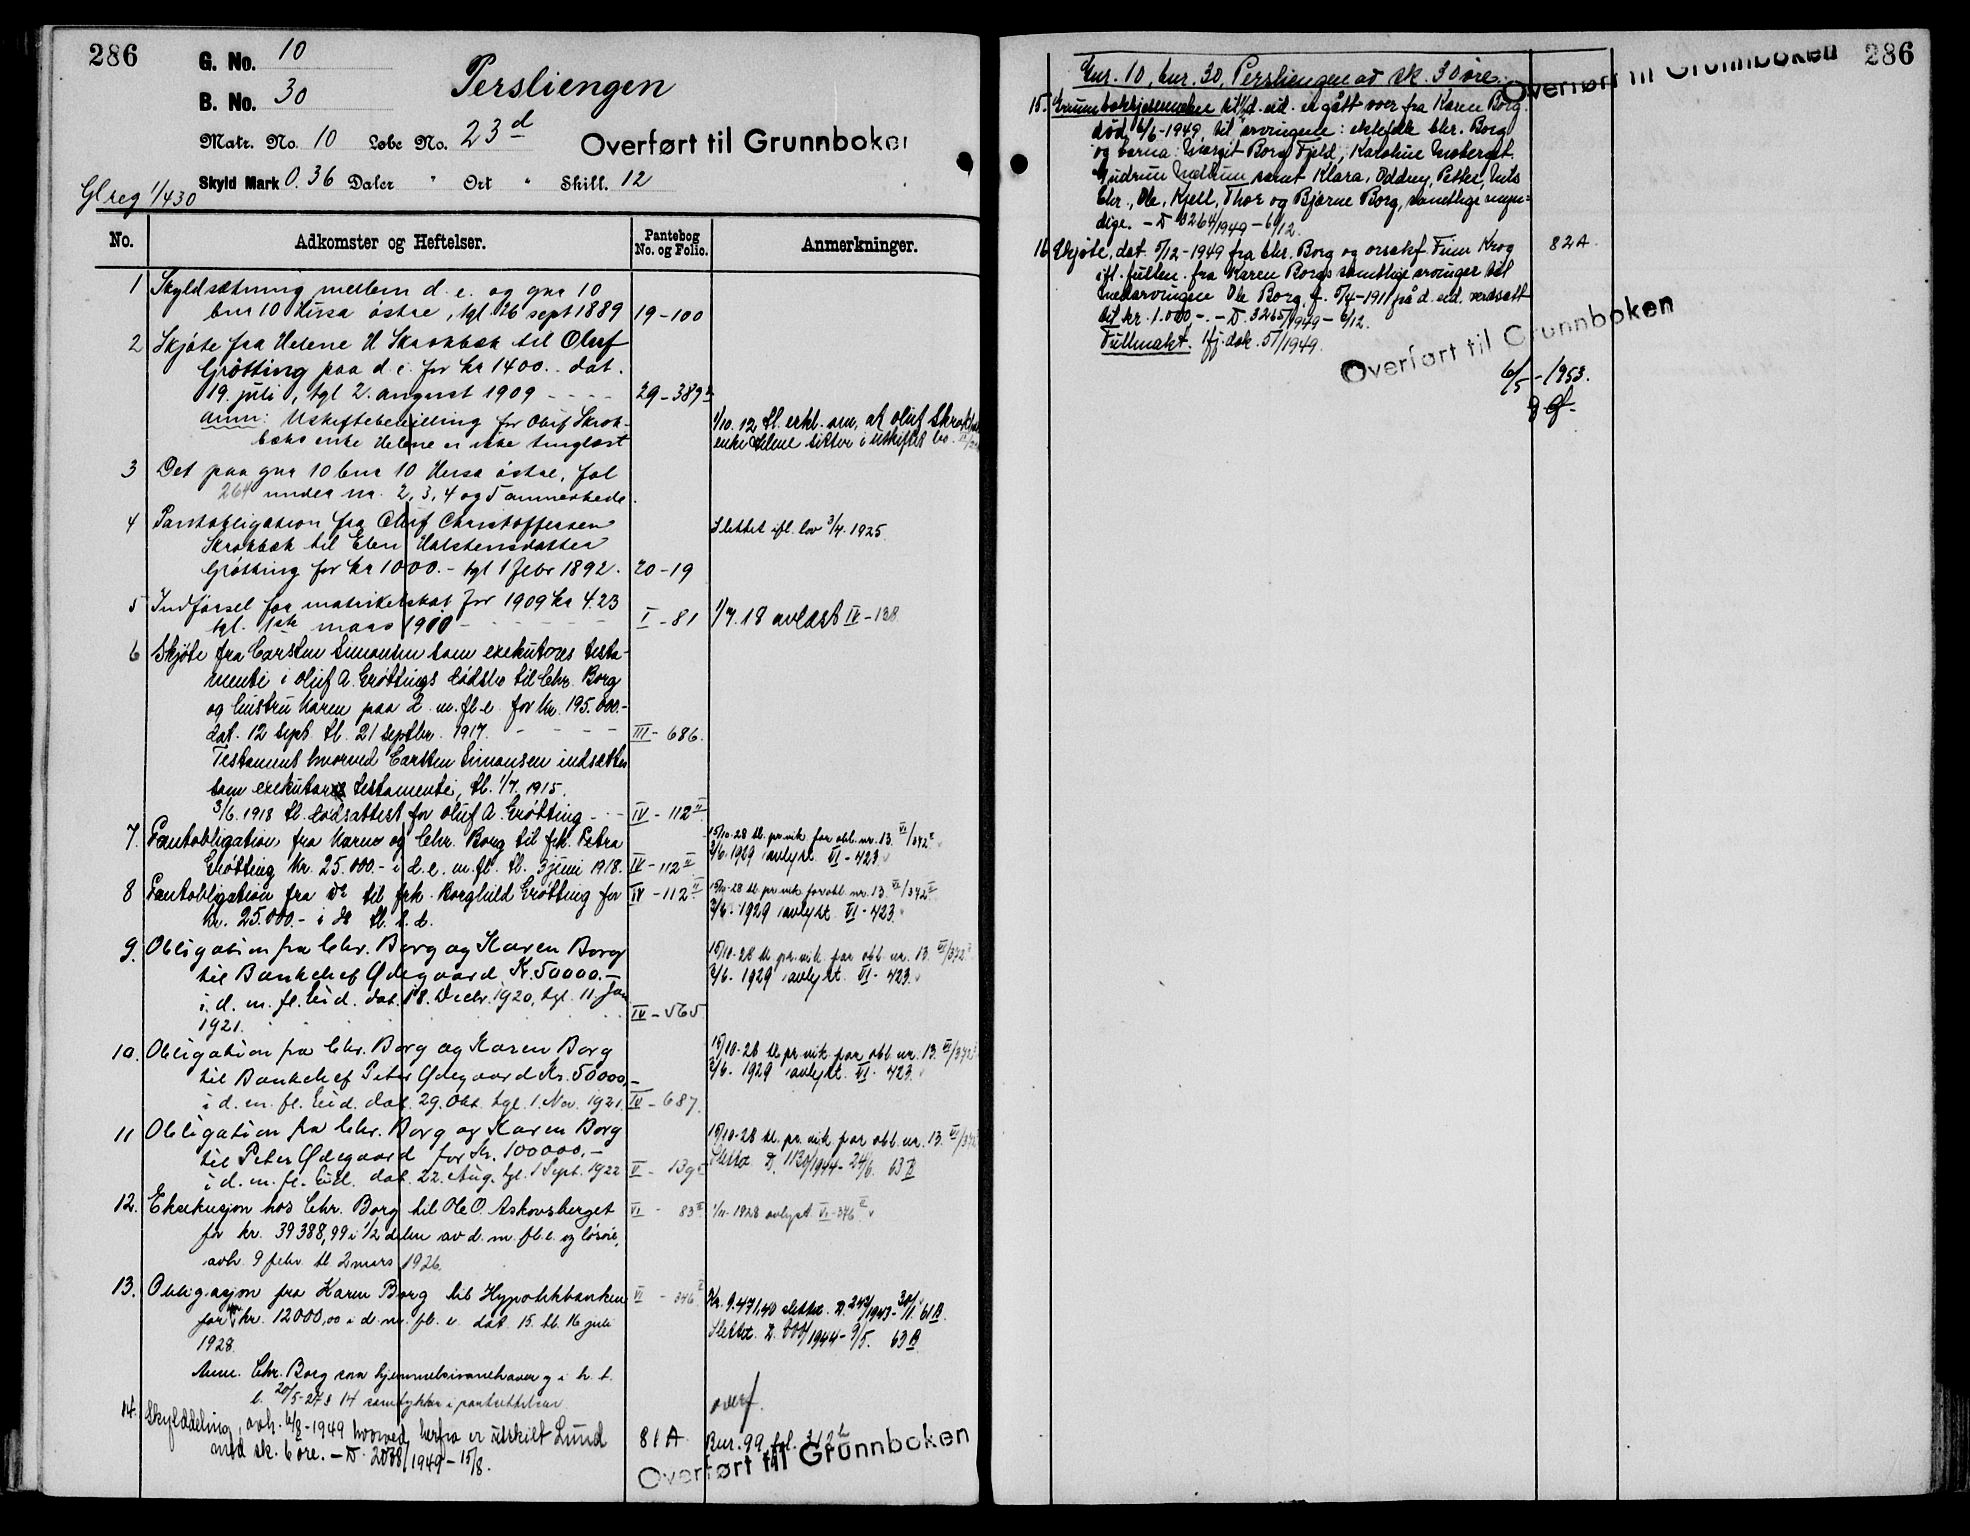 286
G. No. 10
B. No. 30
Persliengen
Matr. No. 10 Løbe No. 23 d
Overført til Grunnboken
Skyld Mark 0.36 Daler " Ort " Skill. 12
Gl reg 1/430
No. Adkomster og Heftelser. Pantebog No. og Folio. Anmerkninger.
1 Skyldsætning mellem d. e. og gnr 10
bnr 10 østre, tgl. 26 sept 1889 19-100
2 Skjøte fra Helene H Skrokbæk til Oluf
Grøtting paa d. e. for kr 1400.- dat.
19. juli, tgl 2. august 1909 - - - - 29-389
anm: Uskiftebevilling for Oluf Skrok-
bæks enke Helene er ikke tinglæst
1/10. 12 tl. erkl. om, at Oluf Skrokbæks
enke Helene sitter i uskiftet bo.
3 Det paa gnr 10 bnr 10 østre, fol
264 under nr. 2, 3, 4 og 5 anmerkede.
4 Pantobligation fra Oluf Christoffersen
Skrokbæk til Eben Halstensdatter
Grøtting for kr 1000.- tgl 1 febr 1892. 20-19
Slettet ifl. lov 3/4. 1925.
5 Indførsel for matrikelskat for 1909 kr 4.23
tgl. 1ste mars 1910 - - - - I-81 1/7. 18 avlæst IV-138.
6 Skjøte fra Carsten Simonsen som exekutores testa-
mente i Oluf A. Grøttings dødsbo til Chr. Borg
og hustru Karen paa d. m. fl. e. for kr. 195.000.-
dat. 12 sept. tl. 21 septbr. 1917. - - - - III-686.
Testament hvorved Carsten Simonsen indsættes
som exekutor testamenti, tl. 1/7. 1915.
3/6. 1918 tl. dødsattest for Oluf A. Grøtting - - IV-112 II
7. Pantobligation fra Karen og Chr. Borg til frk. Petra
Grøtting kr. 25.000.- i d. e. m. fl. tl. 3 juni 1918. IV-112 II
15/10-28 tl. pr. vik. for obl. nr. 13. VI/342 II
3/6. 1929 avlyst VI-423.
8 Pantobligation fra do til frk. Borghild Grøtting for IV-112 II
kr. 25.000.- i do tl. s. d.
15/10-28 tl. pr. vik. for obl. nr. 13. VI/342 II
3/6. 1929 avlyst. VI-423.
9. Obligation fra Chr. Borg og Karen Borg
til Bankchef Ødegaard Kr. 50000.-
i. d. m. fl. Eid. dat. 18. Decbr. 1920, tgl. 11 Jan
1921. IV-565
15/10-28 tl. pr. vik. for obl. nr. 13. VI/342 II
3/6. 1929 avlyst. VI-423.
10. Obligation fra Chr. Borg og Karen Borg
til Bankchef Peter Ødegaard Kr. 50000,-
i d. m. fl. Eid. dat. 29. Okt. tgl. 1. Nov. 1921. IV-687.
15/10-28 tl. pr. vik. for obl. nr. 13. VI/342
3/6. 1929 avlyst. VI-423.
11 Obligation fra Chr. Borg og Karen Borg
til Peter Ødegaard for Kr. 100000.-
i d. m. fl. Eid. dat. 22. Aug. tgl. 1 Sept. 1922 V-139
15/10-28 tl. pr. vik. for obl. nr. 13. VI/342
Slettet D. 1130/1944-24/6. 63 B
12. Eksekusjon hos Chr. Borg til Ole O. Askovsberget VI-83 II
for kr. 39388,99 i 1/2 delen av d. m. fl. e. og løsøre,
avh. 9 febr. tl. 2 mars 1926.
1/11-1928 avlyst VI-346 II
13. Obligasjon fra Karen Borg til Hypotekbanken VI-346
for kr. 12000,00 i d. m. fl. e. dat. 15. tl. 16 juli
1928.
Kr. 9.471,40 slettet. D. 242/1943-30/11 61 B.
Slettet. D. 800/1944-9/5. 63 B
Anm. Chr. Borg som hjemmelsinnehaver g i h. t.
l. 20/5-27 § 14 samtykker i pantsettelsen
overf.
14. Skylddeling, avh. 6/8-1949 hvorved herfra er utskilt Lund 81 A Bnr. 99, fol. 312
med sk. 6 øre. - D. 2038/1949-15/8.
Overført til Grunnboken
286
Gnr. 10, bnr. 30, Persliengen av sk. 30 øre.
Overført til Grunnboken
15. Grunnbokhjemmelen til d. eid. er gått over fra Karen Borg
død 6/6-1949, til arvingene: ektefelle Chr. Borg
og barna: Margit Borg Fjeld, Karoline Moberget,
Gudrun samt Klara, Oddny, Petter, Nils
Chr., Ole, Kjell, Thor og Bjarne Borg, samtlige myn-
dige. - D 3264/1949-6/12.
16. Skjøte, dat. 5/12-1949 fra Chr. Borg og orsakf. Finn Krog 82 A.
ifl. fullm. fra Karen Borgs samtlige arvinger til
medarvingen Ole Borg, f. 5/4-1911 på d. eid. verdsatt
til kr. 1.000,-. - D. 3265/1949-6/12.
Fullmakt. Hj. dok. 51/1949.
Overført til Grunnboken
6/5-1953.